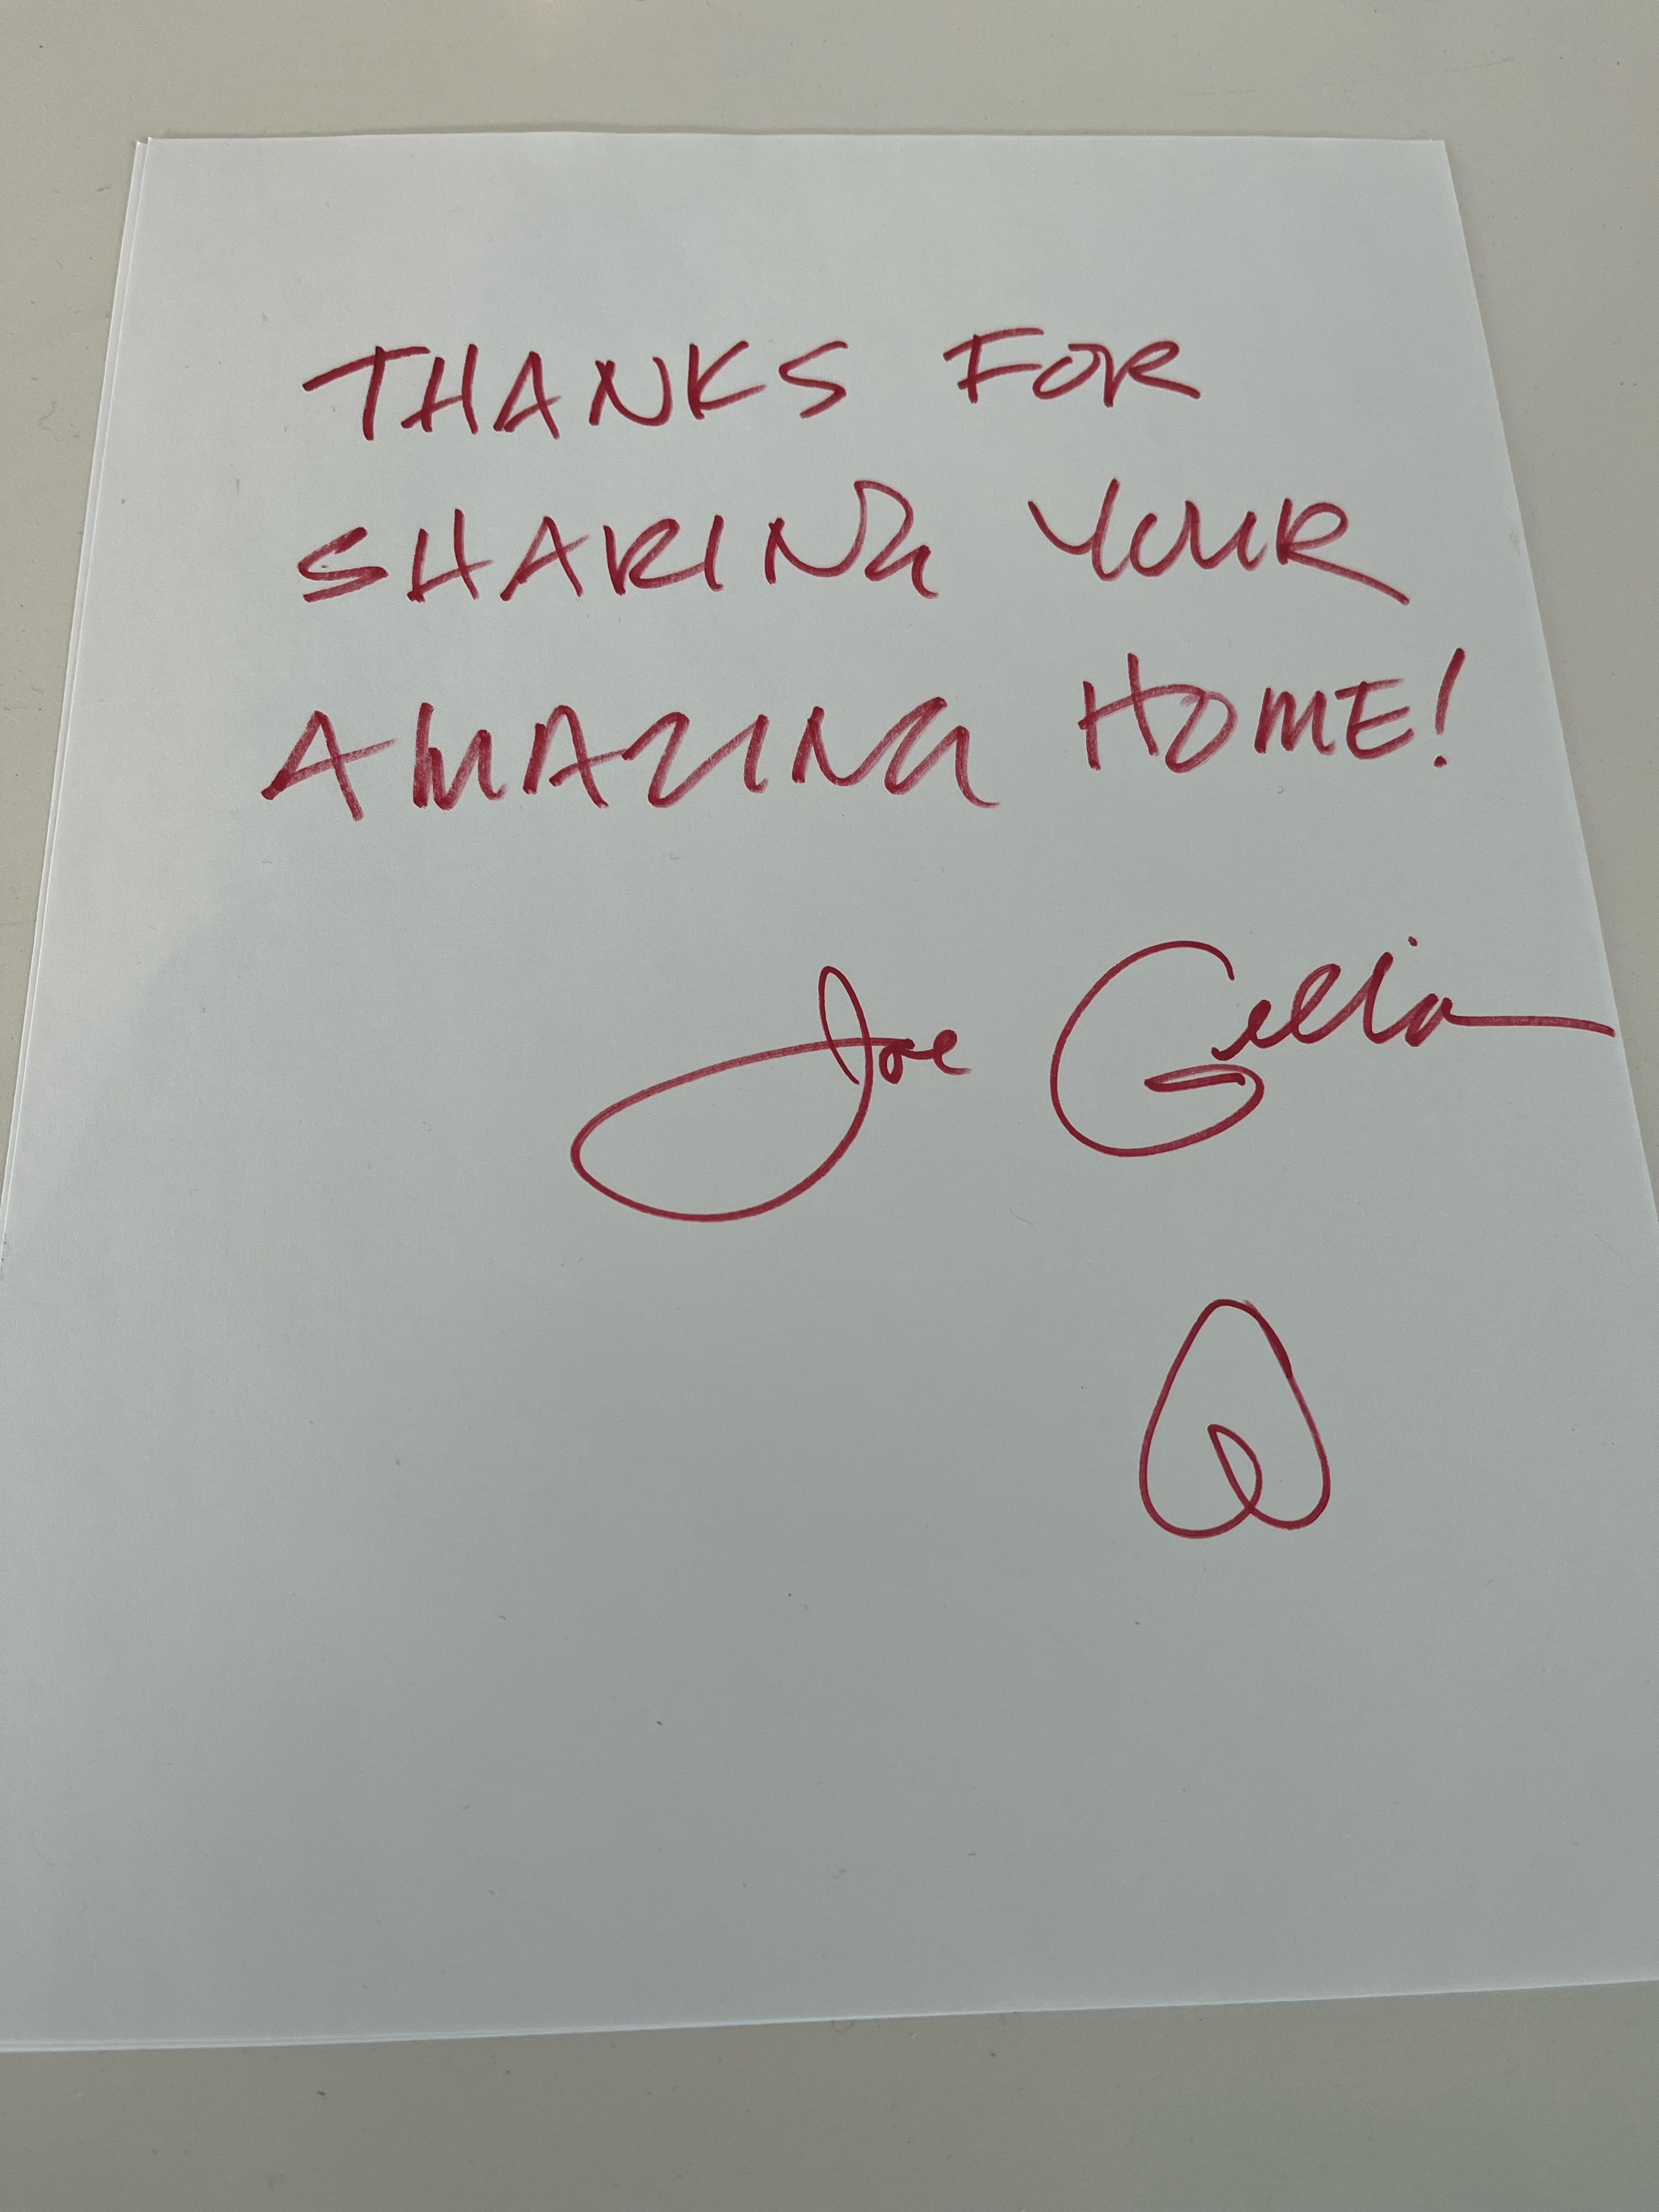 THANKS FOR
SHARING YOUR
AMAZING HOME!
Joe Gebbia